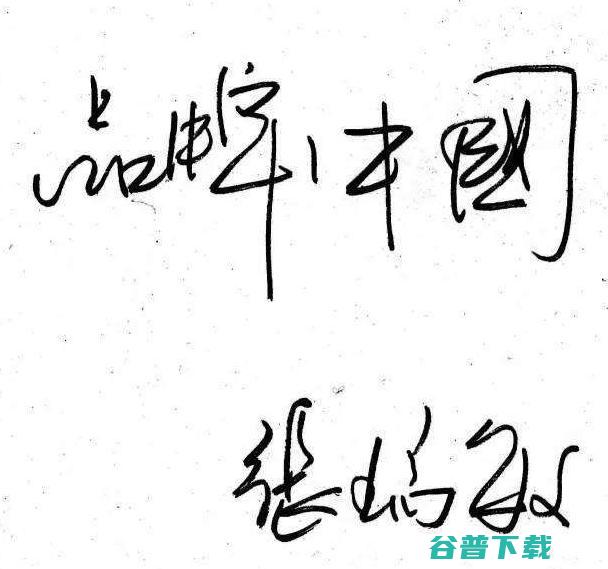 品牌中國
張瑞敏
谷普下载